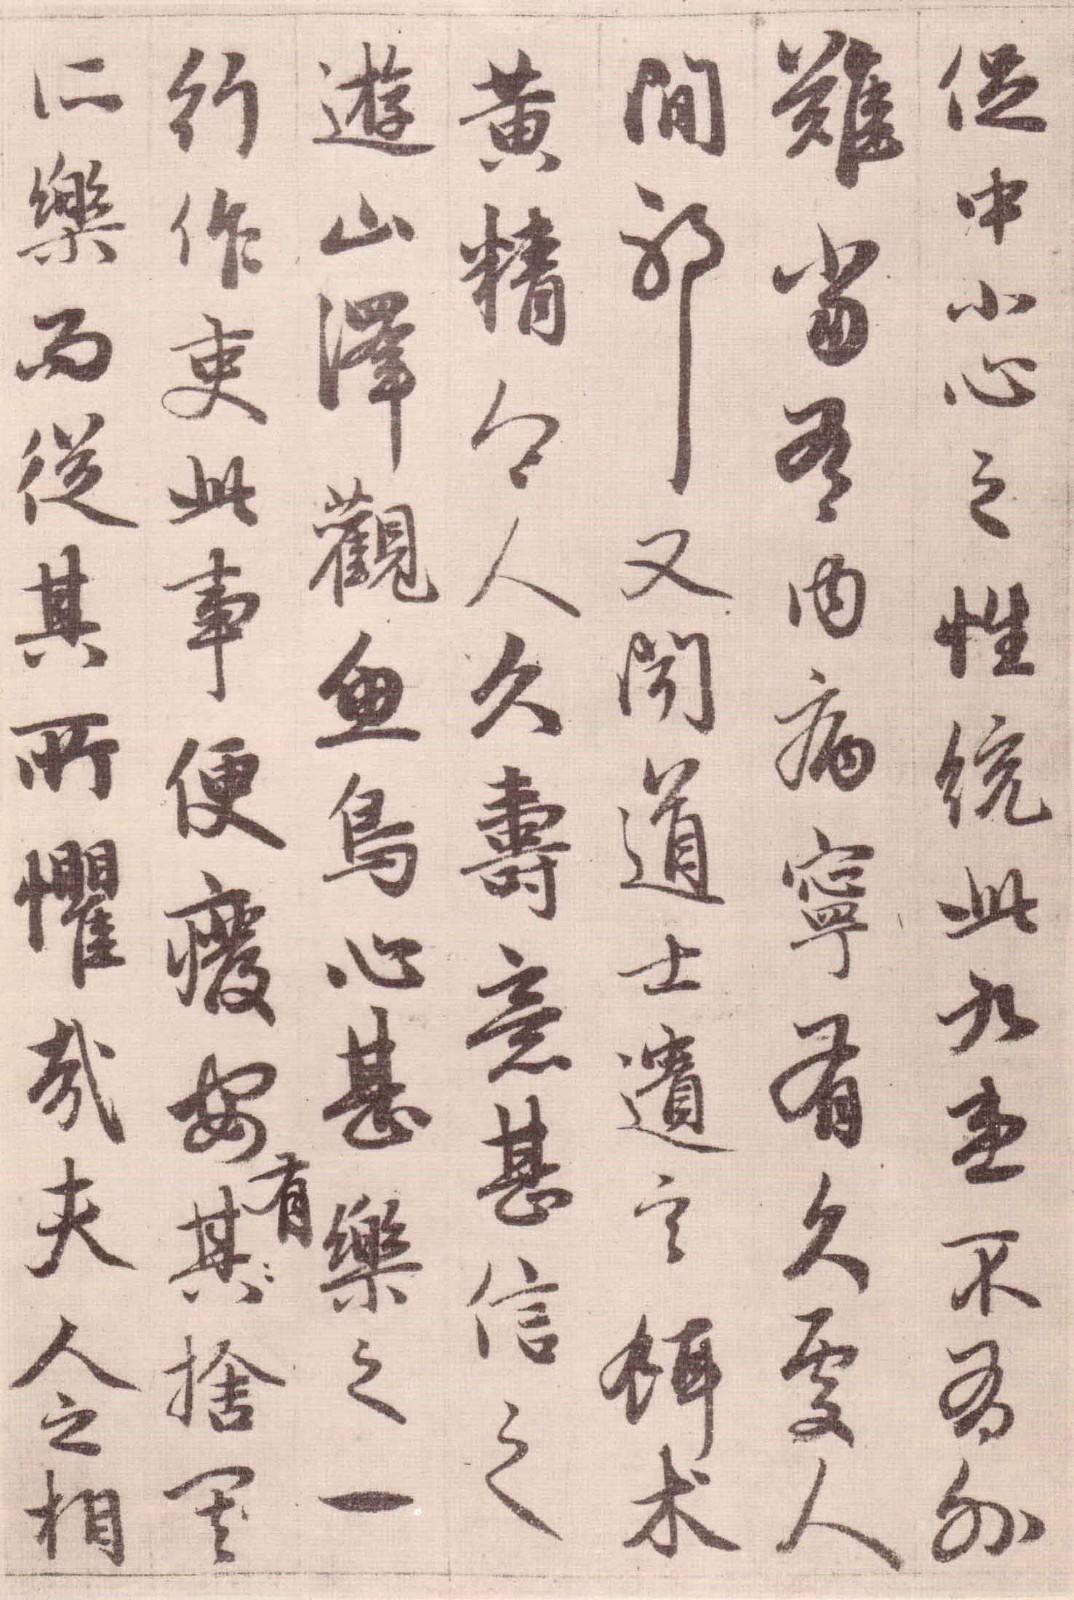 促中小心之性統此九患不有外
難當有內病寧有久處人
間邪又聞道士遺言餌术
黃精令人久壽意甚信之
遊山澤觀魚鳥心甚樂之一
行作吏此事便廢安其有捨其
所樂而從其所懼哉夫人之相